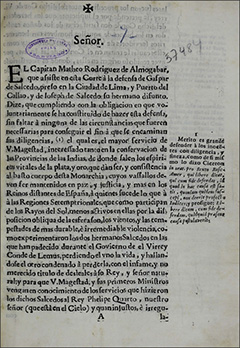 Señor.
37484
EL Capitan Matheo Rodriguez de Almogabar,
que assiste en esta Corte à la defensa de Gaspar
de Salcedo, preso en la Ciudad de Lima, y Puerto del
Callao, y de Ioseph de Salcedo su hermano difunto.
Dize, que cumpliendo con la obligacion en que vo-
luntariamente se ha constituido de hazer esta defensa,
sin faltar à ninguna de las circunstancias que fueren
necessarias para conseguir el fin à que se encaminan
sus diligencias, el qual es, el mayor servicio de
V. Magestad, interessado tambien la conservacion de
las Provincias de las Indias, de donde salen los espiri-
vitales de la plata, y oro que dàn ser, y consistencia
al basto cuerpo desta Monarchia, cuyos vassallos de-
ven ser mantenidos en paz, y justicia, y mas en los
Reinos distantes de España, à quienes sucede lo que
à las Regiones Septemtrionales, que como participan
de los Rayos del Sol, menos activos en ellas por la dis-
posicion obliqua de la esfera, son los vientos, y las tem-
pestades de mas durable, è irremediable violencia, co-
mo experimentaron los dos hermanos Salcedos en las
que han padecido durante el Govierno de el Virrey
Conde de Lemus, perdiendo el vno la vida, y hallan-
dose el otro condenado à perderla, con el infame, y no
merecido titulo de desleales à su Rey, y señor natural,
y para que V. Magestad, y sus primeros Ministros
vengan en conocimiento de los servicios que hizieron
los dichos Salcedos al Rey Phelipe Quarto, nuestro
señor (que està en el Cielo) y quan injustos, è irregu-
A
la-
Merito es grande
defender à los inocen-
tes con diligencia, y